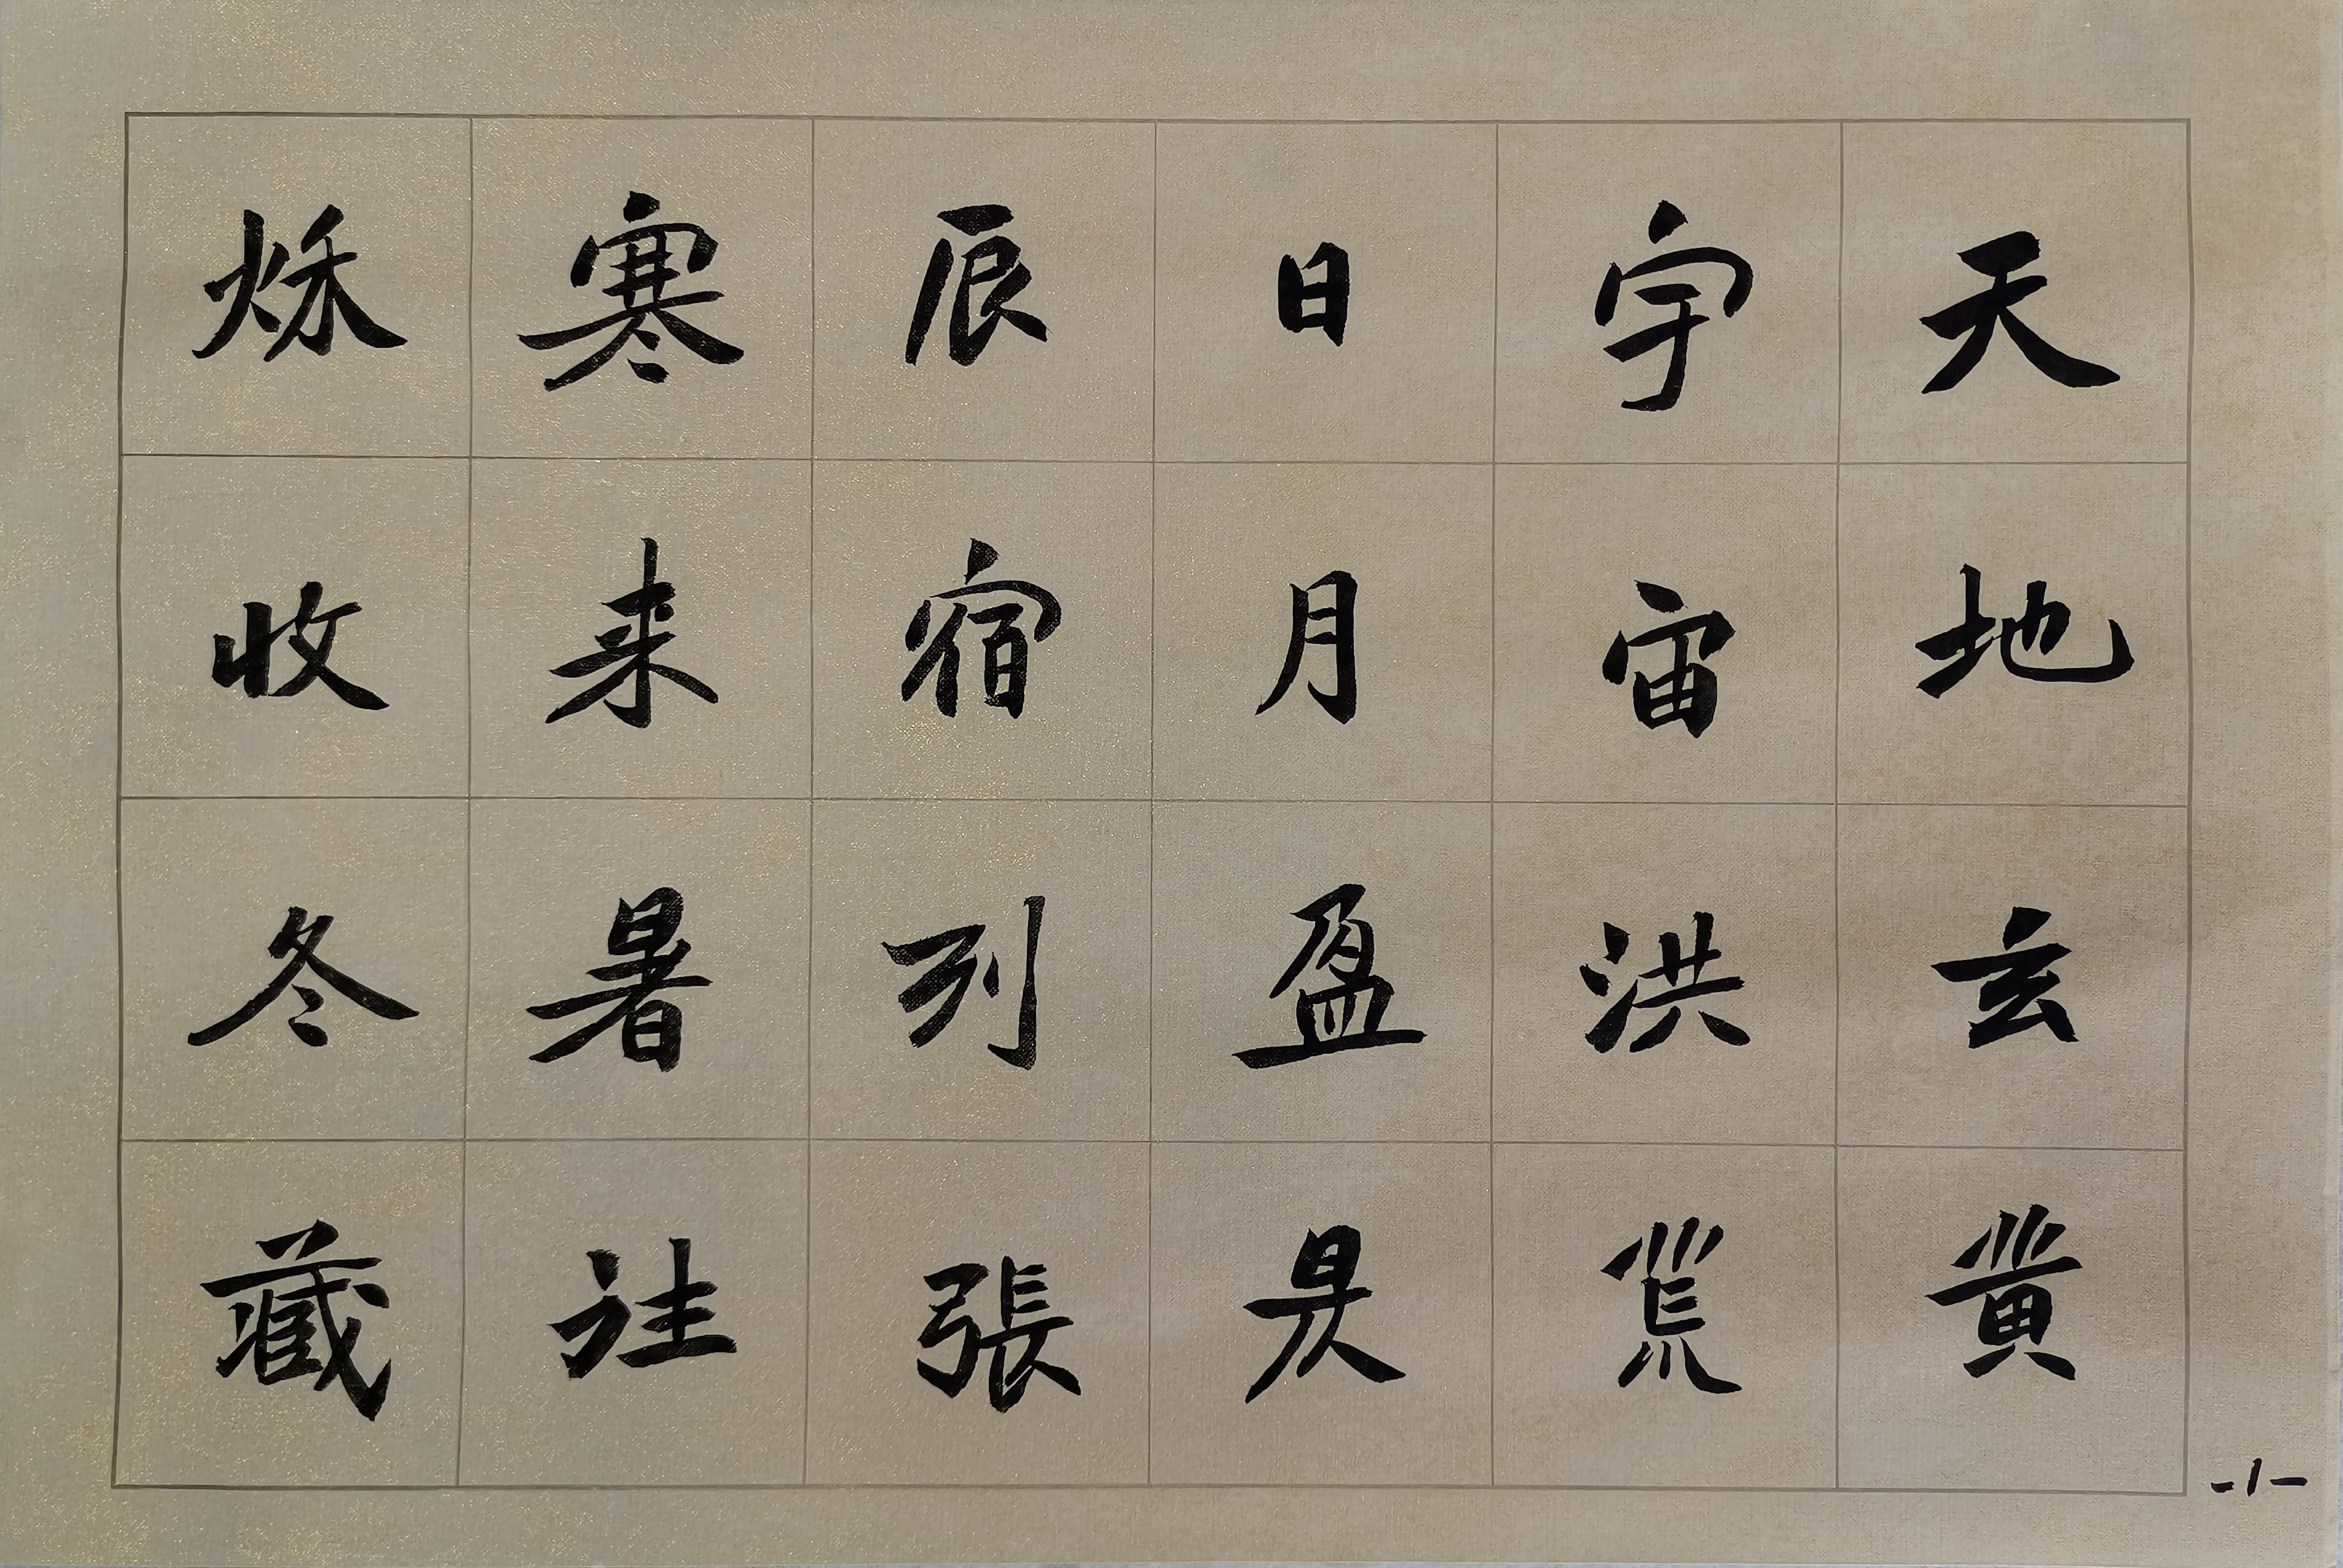 天地玄黄
宇宙洪荒
日月盈昃
辰宿列張
寒来暑往
秌收冬藏
-1-